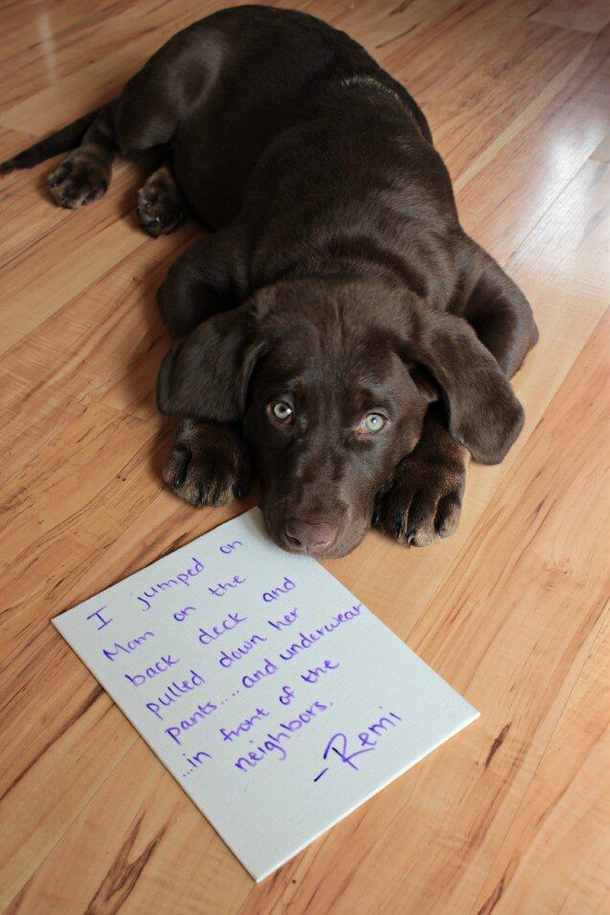 I jumped on
Mom on the
back deck and
pulled down her
pants.... and underwear
...in front of the
neighbors.
-Remi